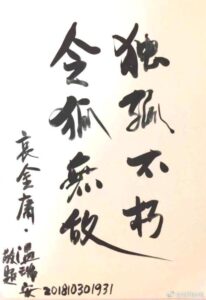 独孤不朽
令狐無故
哀金庸·温瑞安
敬題
201810301931